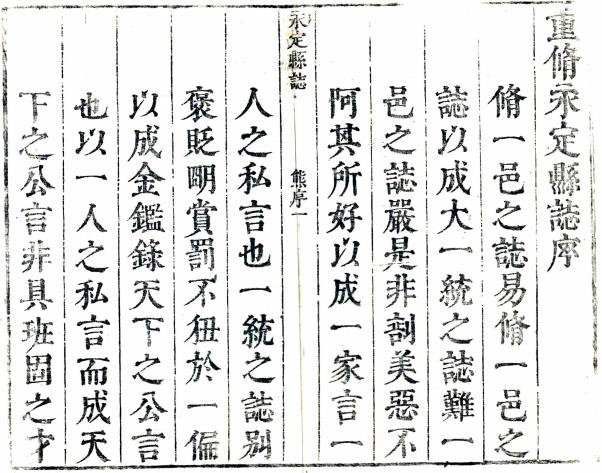 重脩永定縣誌序
脩一邑之誌易脩一邑之
誌以成大一統之誌難一
邑之誌嚴是非剖美惡不
阿其所好以成一家言一
永定縣誌
熊序一
人之私言也一統之誌别
褒貶眀賞罰不狃於一偏
以成金鑑錄天下之公言
也以一人之私言而成天
下之公言非具班固之才